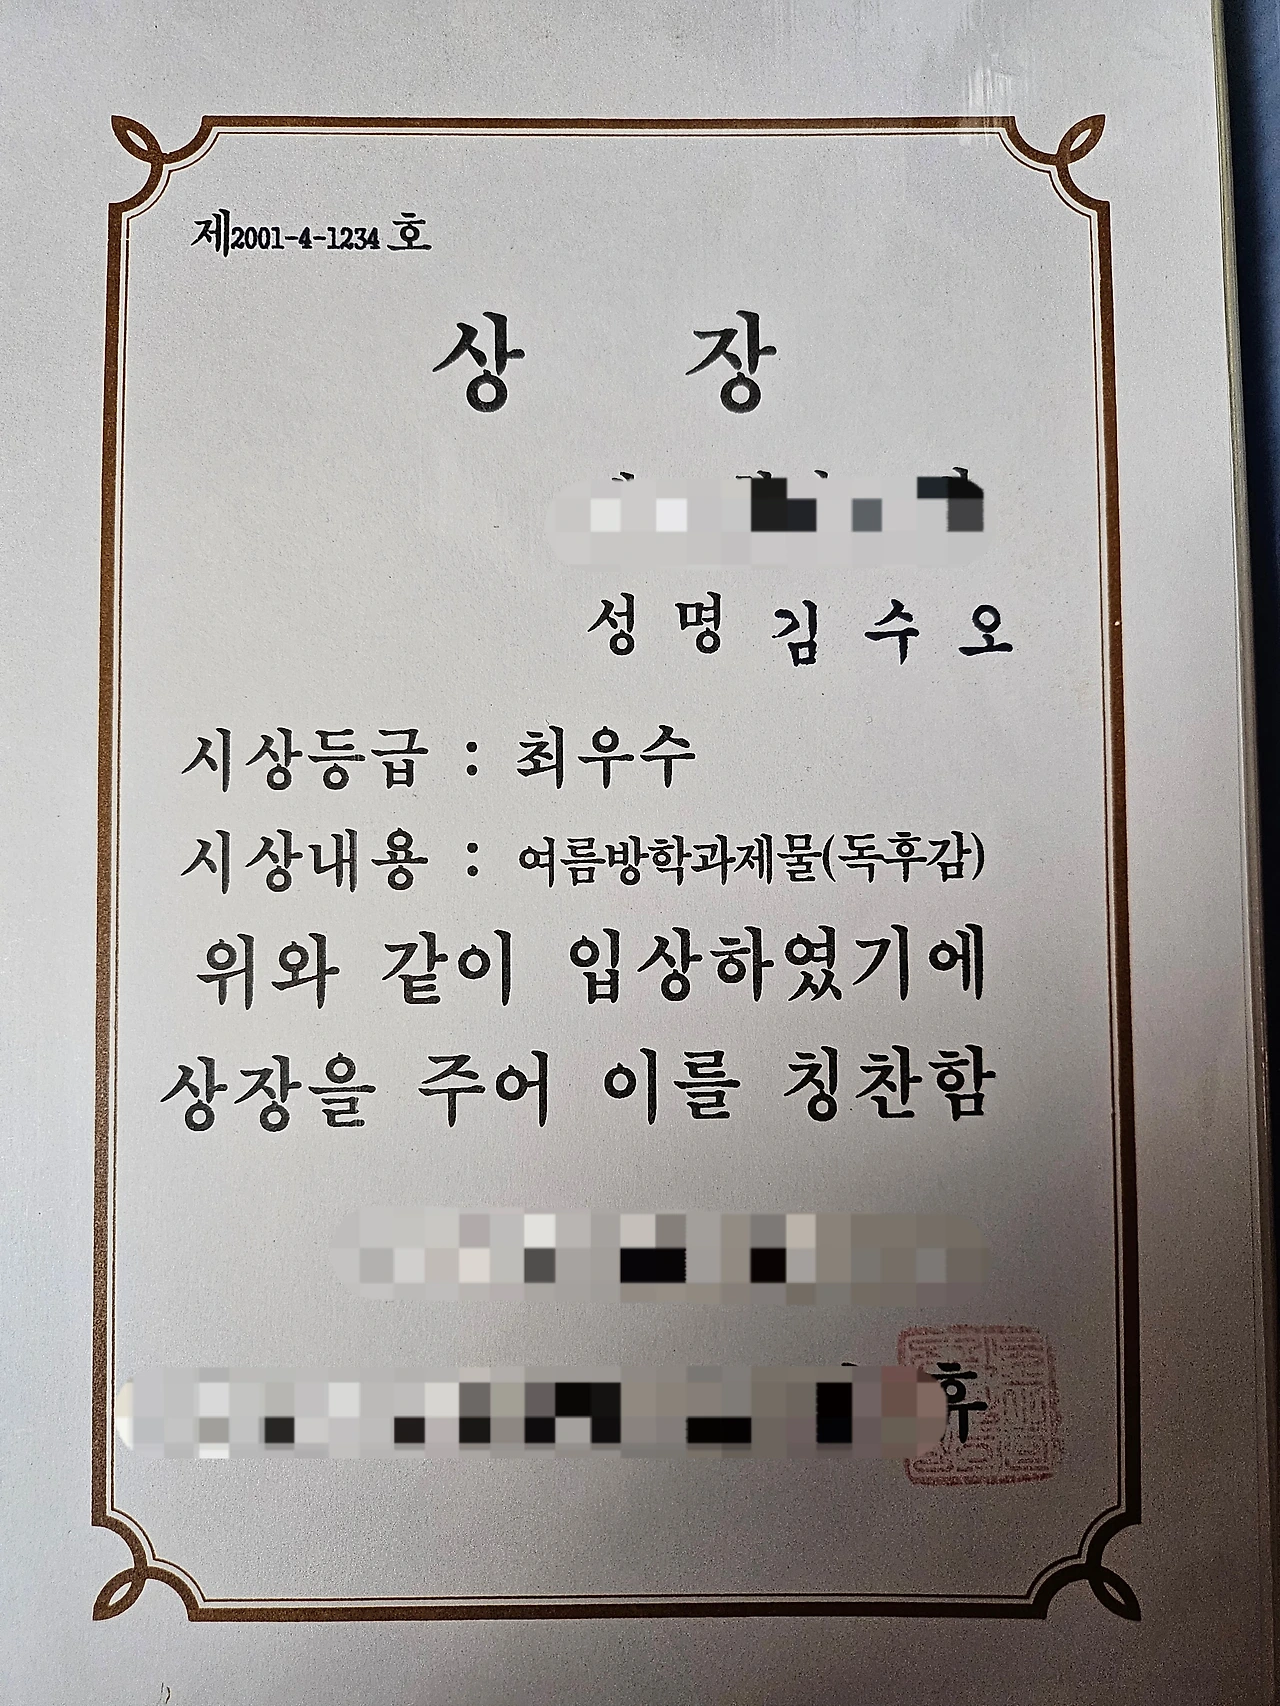 제2001-4-1234 호
상 장
성 명 김 수 오
시상등급 : 최우수
시상내용 : 여름방학과제물(독후감)
위와 같이 입상하였기에
상장을 주어 이를 칭찬함
후